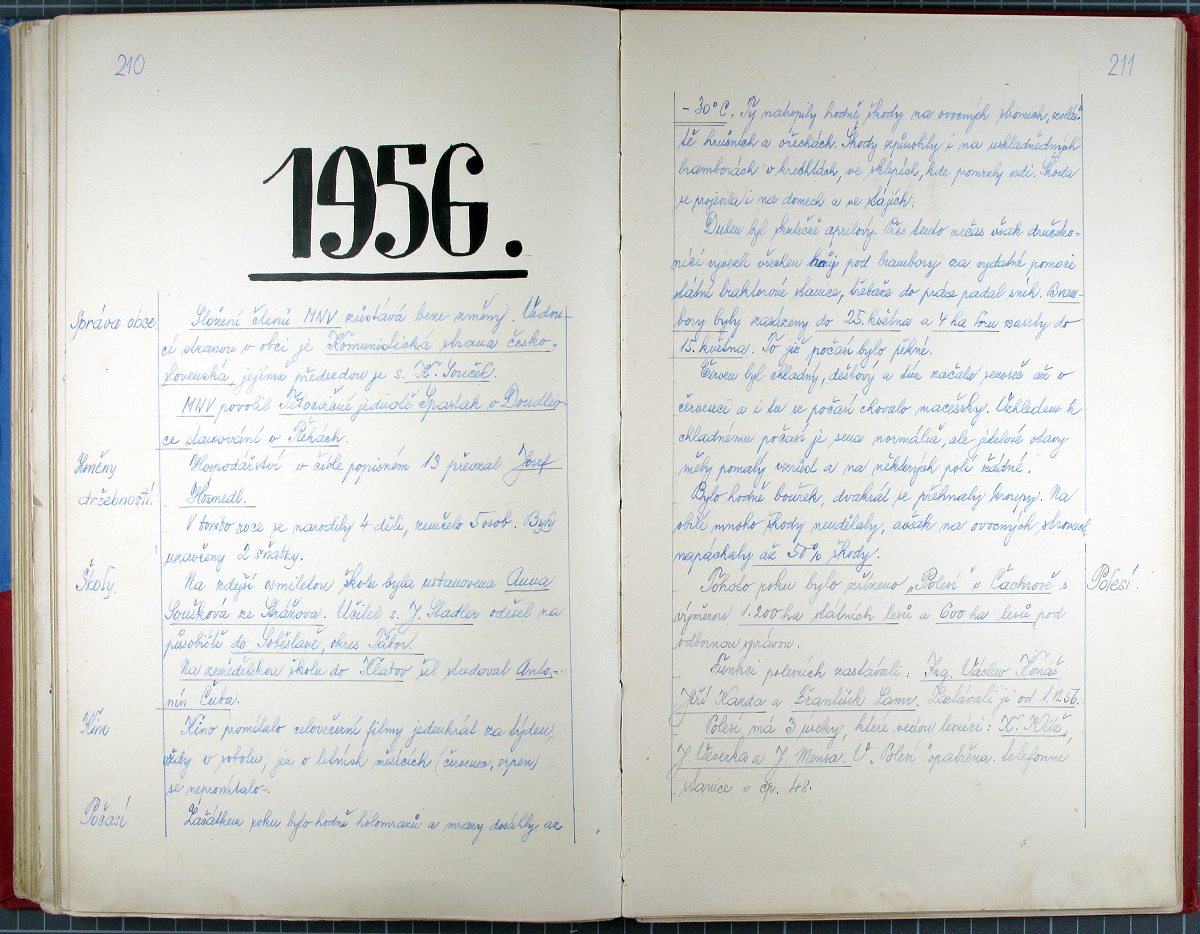 210
1956.
Správa obce
Složení členů MNV zůstává beze změny. Vedou-
cí stranou v obci je Komunistická strana česko-
slovenská, jejímž předsedou je s. K. Souček.
MNV povolil Tělocvičné jednotě Spartak v Doudlev-
ce stanování v Řekách.
Změny
držebností.
Hospodářství v čísle popisném 13 převzal Josef
Hosnedl.
V tomto roce se narodily 4 děti, zemřelo 5 osob. Byly
uzavřeny 2 sňatky.
Školy.
Na zdejší osmiletou školu byla ustanovena Anna
Soušková ze Strážova. Učitel s. J. Stadler odešel na
působiště do Soběslavě, okres Tábor.
Na zemědělskou školu do Klatov šel studovat Anto-
nín Čuba.
Kino
Kino promítalo celovečerní filmy jedenkrát za týden,
vždy v sobotu, jen v letních měsících (červenec, srpen)
se nepromítalo.
Počasí
Začátkem roku bylo hodně holomrazů a mrazy dosáhly až
211
- 30° C. Ty natropily hodně škody na ovocných stromech, zvláš-
tě hrušních a ořechách. Škody způsobily i na uskladněných
bramborách v krechtách, ve sklepích, kde pomrzly zdi. Škoda
se projevila i na domech a ve stájích.
Duben byl skutečně aprílový. Přes tento nečas však družstev-
níci vyvezli všechen hnůj pod brambory za vydatné pomoci
státní traktorové stanice, třebaže do práce padal sníh. Bram-
bory byly zasázeny do 25. května a 4 ha lnu zasety do
15. května. To již počasí bylo pěkné.
Červen byl chladný, deštivý a tím začala senoseč až v
červenci a i tu se počasí chovalo macešsky. Vzhledem k
chladnému počasí je sena normálně, ale jetelové otavy
měly pomalý vzrůst a na některých polí žádné.
Bylo hodně bouřek, dvakrát se přehnaly kroupy. Na
obilí mnoho škody neudělaly, avšak na ovocných stromech
napáchaly až 50% škody.
Polesí.
Tohoto roku bylo zřízeno „Polesí" v Čachrově s
výměrou 1.200 ha státních lesů a 600 ha lesů pod
odbornou správou.
Funkci polesních zastávali: Ing. Václav Koňas,
Jiří Kazda a František Lamr. Zastávali ji od 1.12.56.
Polesí má 3 úseky, které vedou lesníci: K. Kříž,
J. Veverka a J. Mensa. V „Polesí" opatřena telefonní
stanice v čp. 48.